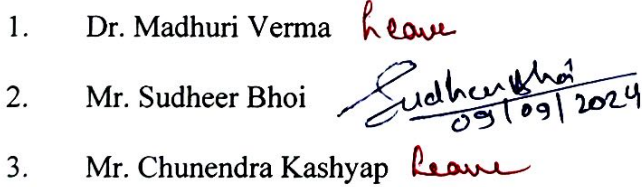 1. Dr. Madhuri Verma Leave
2. Mr. Sudheer Bhoi SudheerBhoi
09/09/2024
3. Mr. Chunendra Kashyap Leave